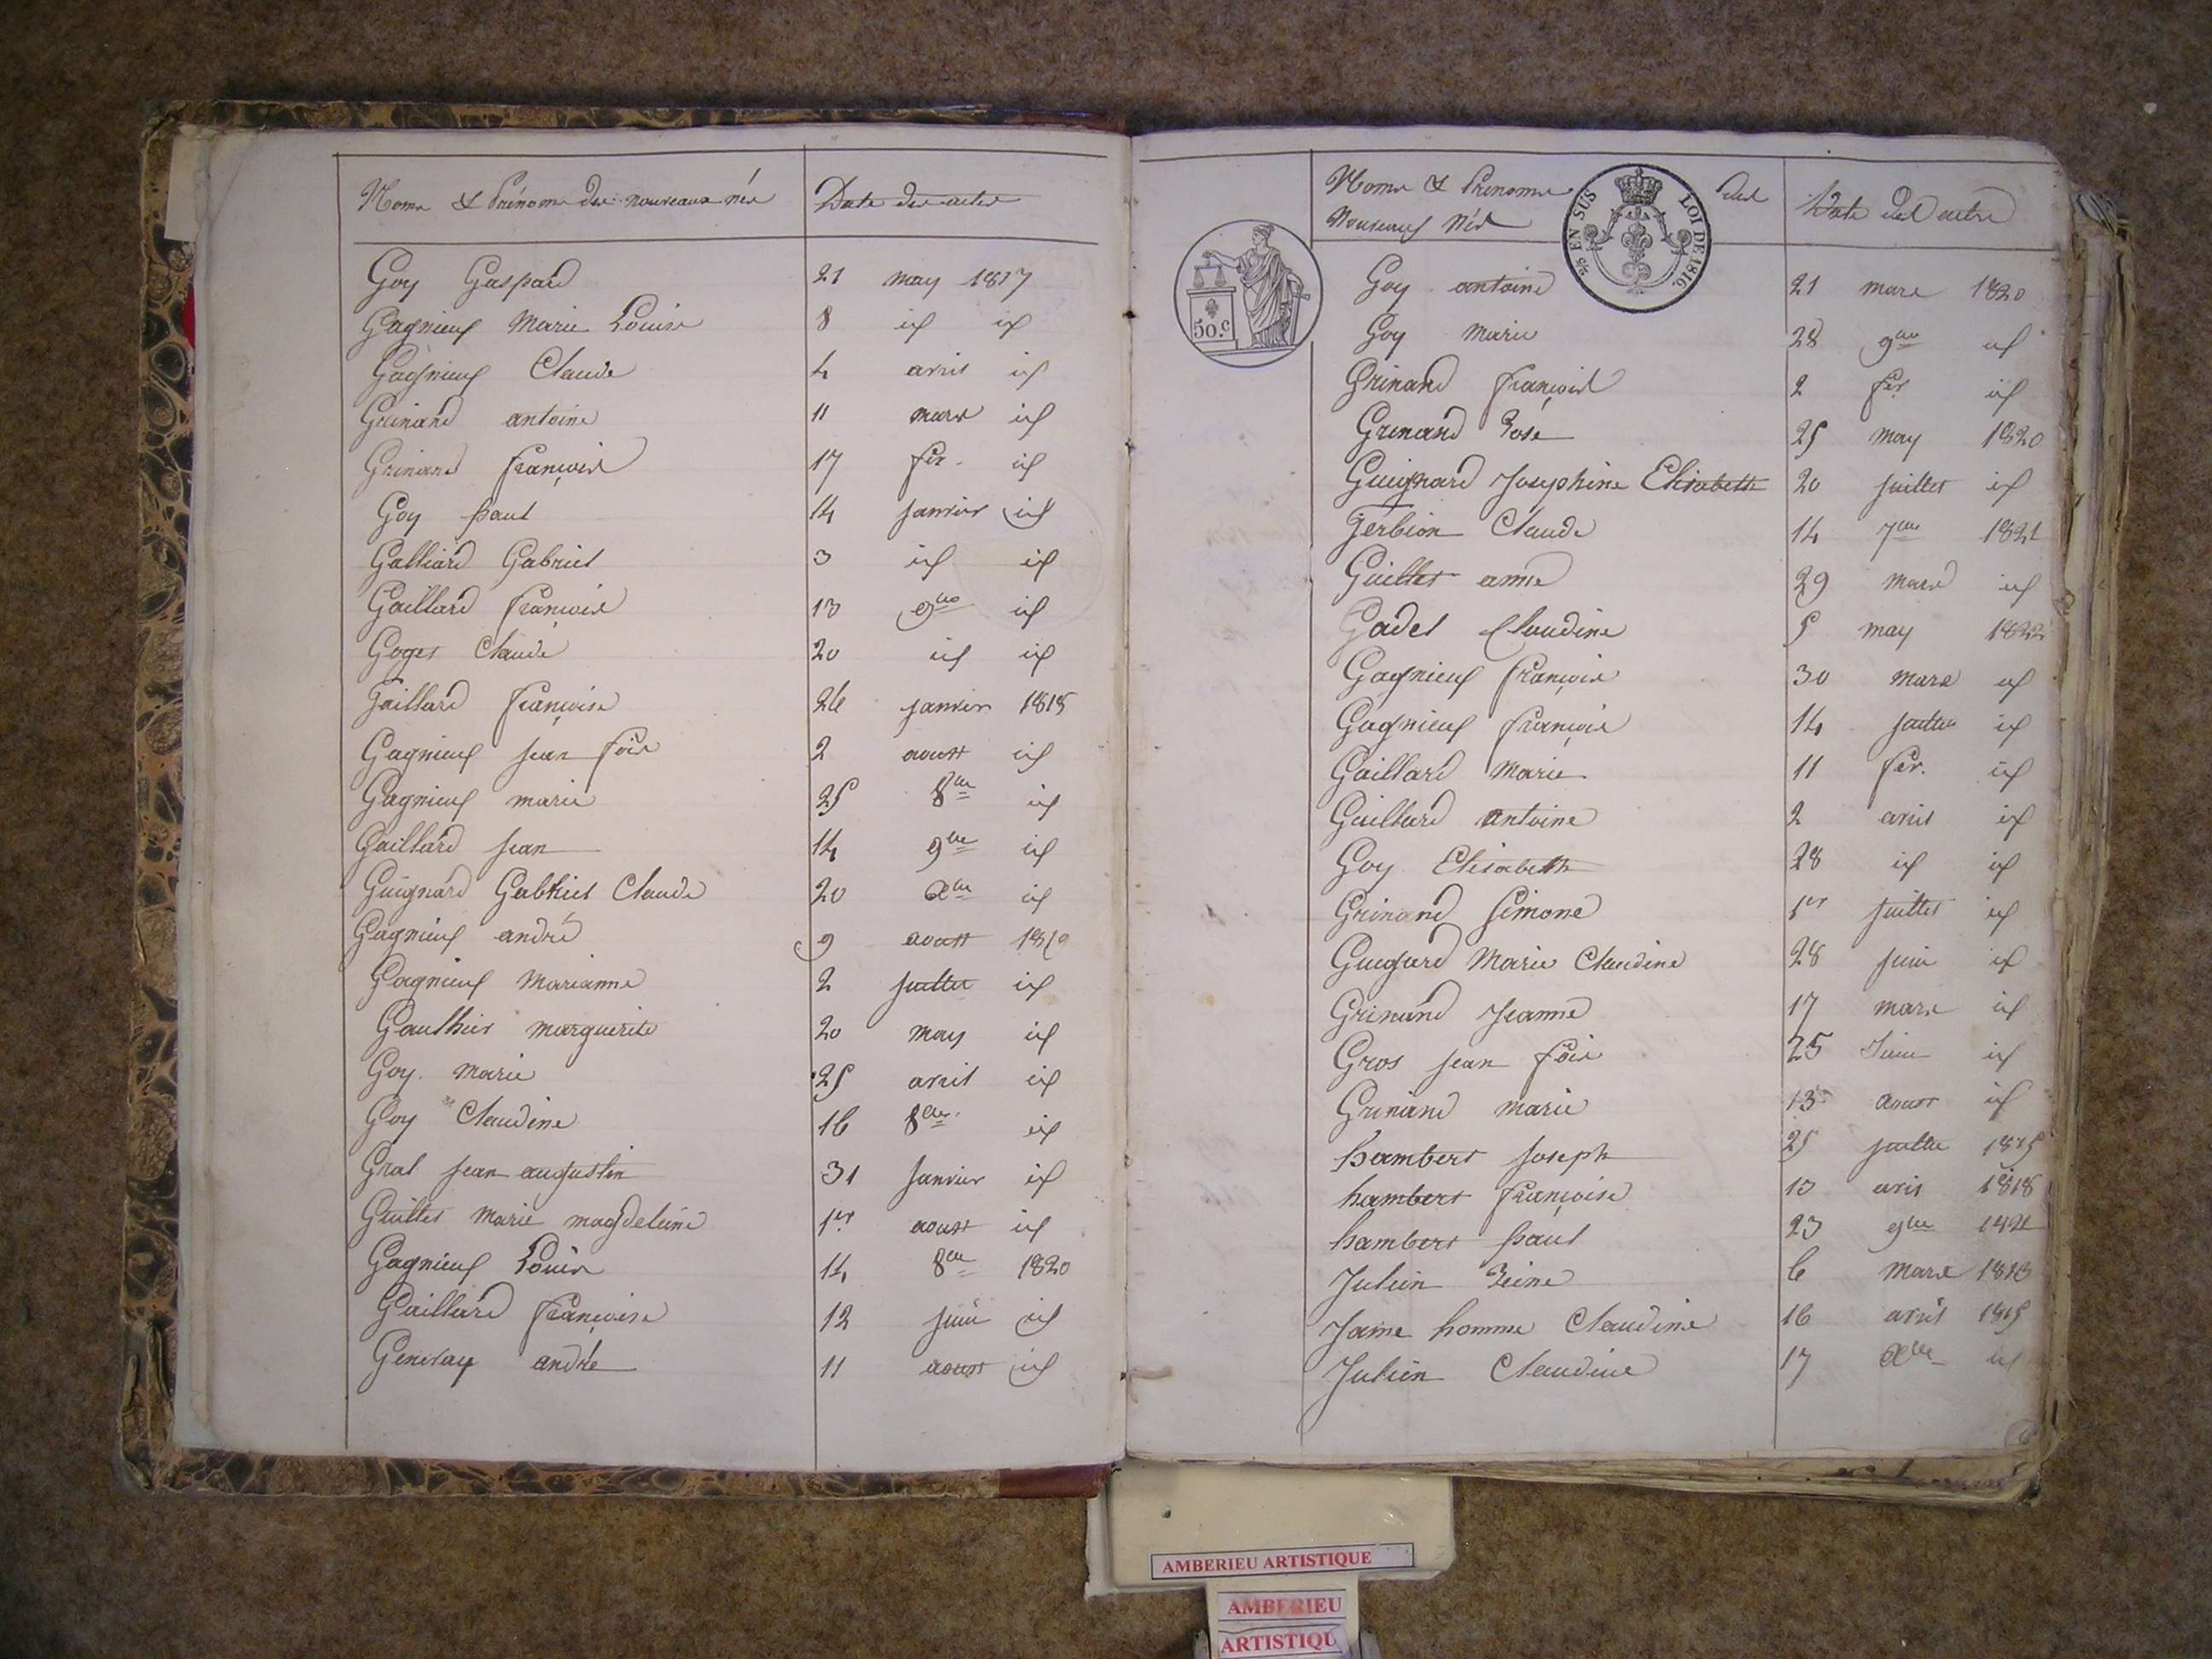 Noms & Prénoms des nouveaux nés Date des actes
Goy Gaspard 21 may 1817
Gagnieux Marie Louise 8 id id
Gagnieux Claude 4 avril id
Grinand antoine 11 mars id
Grinand françois 17 fer. id
Goy paul 14 janvier id
Galliard Gabriel 3 id id
Gaillard françois 13 9bre id
Goget Claude 20 id id
Gaillard françoise 26 janvier 1818
Gagnieux jean fois 2 aoust id
Gagnieux marie 25 8bre id
Gaillard jean 14 9bre id
Guignard Gabriel Claude 20 Xbre id
Gagnieux andré 9 aoust 1819
Gagnieux marianne 2 juillet id
Gauthier marguerite 20 may id
Goy marie 25 avril id
Goy Claudine 16 8bre id
Grat jean augustin 31 janvier id
Guillet marie magdeleine 1er aoust id
Gagnieux Louis 14 8bre 1820
Gaillard françoise 12 juin id
Genevay andré 11 aoust id
Noms & Prénoms des Date des actes
Nouveaux Nés
5/c EN SUS LOI DE 1816.
50.c
Goy antoine 21 mars 1820
Goy marie 28 9bre id
Grinand françois 2 fer id
Grinand Rose 25 may 1820
Guignard Josephine Elisabeth 20 juillet id
Gerbion Claude 14 7bre 1821
Guillet anne 29 mars id
Gadet Claudine 5 may 1822
Gagnieux françois 30 mars id
Gagnieux françois 14 juillet id
Gaillard marie 11 fer. id
Gaillard antoine 2 avril id
Goy Elisabeth 28 id id
Grinand Simone 1er juillet id
Guigard Marie Claudine 28 juin id
Grinand Jeanne 17 mars id
Gros jean fois 25 Juin id
Grinand marie 13 aoust id
hambert joseph 25 juillet 1815
hambert françoise 13 avril 1818
hambert paul 23 9bre 1821
Julien Reine 6 mars 1813
Jame homme Claudine 16 avril 1815
Julien Claudine 17 Xbre id
AMBERIEU ARTISTIQUE
AMBERIEU
ARTISTIQU